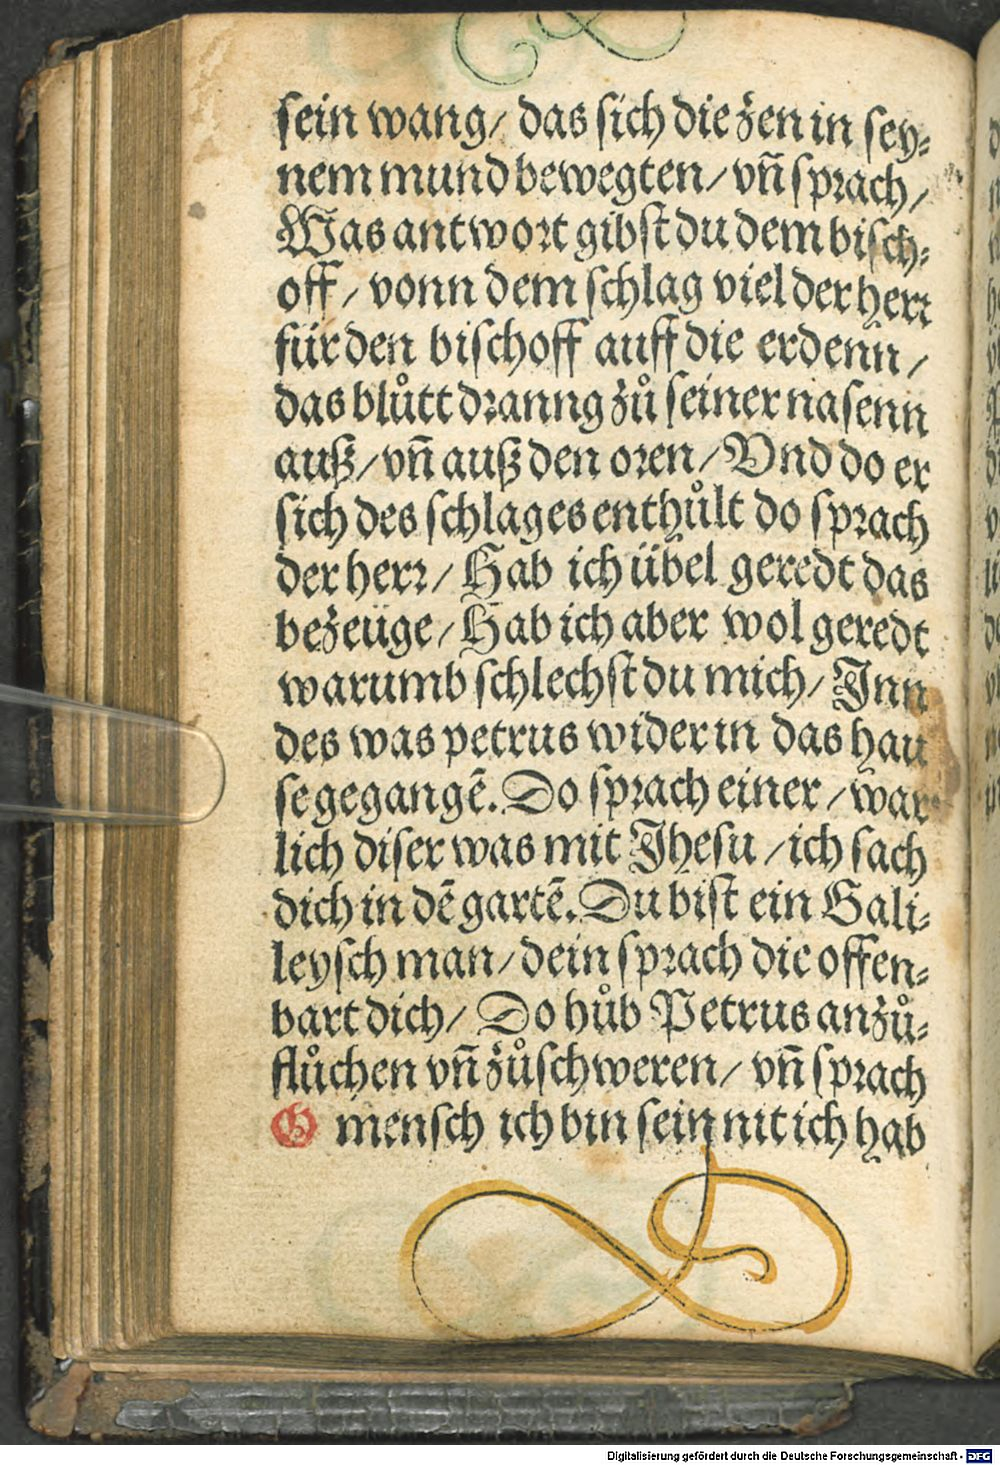 sein wang/ das sich die zen in sey⸗
nem mund bewegten/ vn̄ sprach/
Was antwort gibst du dem bisch⸗
off/ vonn dem schlag viel der herr
für den bischoff auff die erdenn/
das blůtt dranng zů seiner nasenn
auß/ vn̄ auß den oren/ Vnd do er
sich des schlages enthůlt do sprach
der herr/ Hab ich übel geredt das
bezeüge/ Hab ich aber wol geredt
warumb schlechst du mich/ Inn
des was petrus wider in das hau
se gegangē. Do sprach einer/ war
lich diser was mit Jhesu/ ich sach
dich in dē gartē. Du bist ein Gali⸗
leysch man/ dein sprach die offen⸗
bart dich/ Do hůb Petrus an zů⸗
flůchen vn̄ zůschweren/ vn̄ sprach
O mensch ich bin sein nit ich hab
Digitalisierung gefördert durch die Deutsche Forschungsgemeinschaft - DFG